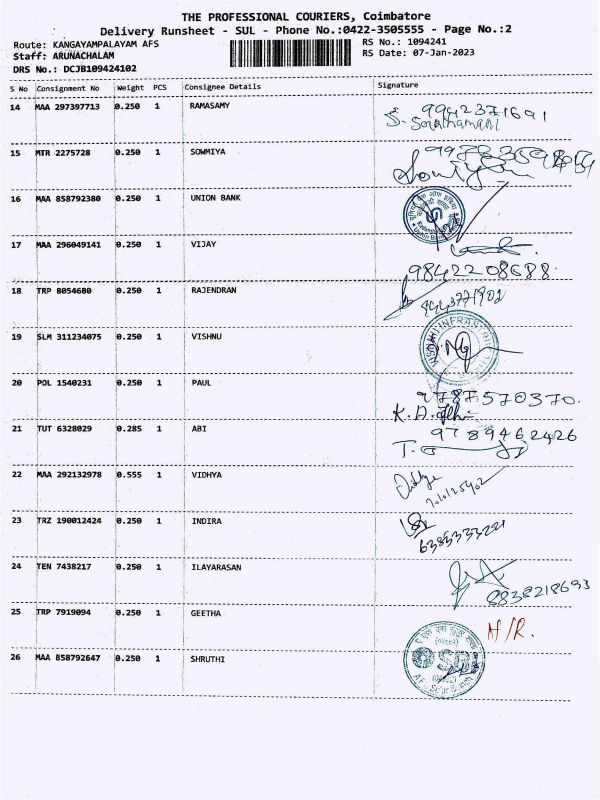 THE PROFESSIONAL COURIERS, Coimbatore
Delivery Runsheet - SUL - Phone No.:0422-3505555 - Page No.:2
Route: KANGAYAMPALAYAM AFS
RS No.: 1094241
Staff: ARUNACHALAM
RS Date: 07-Jan-2023
DRS No.: DCJB109424102
S No Consignment No Weight PCS Consignee Details Signature
14 MAA 297397713 0.250 1 RAMASAMY
9942371691
15 MTR 2275728 0.250 1 SOWMIYA
16 MAA 858792380 0.250 1 UNION BANK
17 MAA 296049141 0.250 1 VIJAY
9842208688
18 TRP 8054680 0.250 1 RAJENDRAN
9443771902
19 SLM 311234075 0.250 1 VISHNU
20 POL 1540231 0.250 1 PAUL
9787570370.
21 TUT 6328029 0.285 1 ABI
9789462426
22 MAA 292132978 0.555 1 VIDHYA
23 TRZ 190012424 0.250 1 INDIRA
24 TEN 7438217 0.250 1 ILAYARASAN
8838218693
25 TRP 7919094 0.250 1 GEETHA
N/R.
26 MAA 858792647 0.250 1 SHRUTHI
SBI